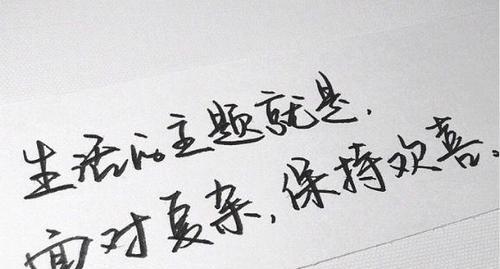 生活的主题就是,
面对复杂,保持欢喜。